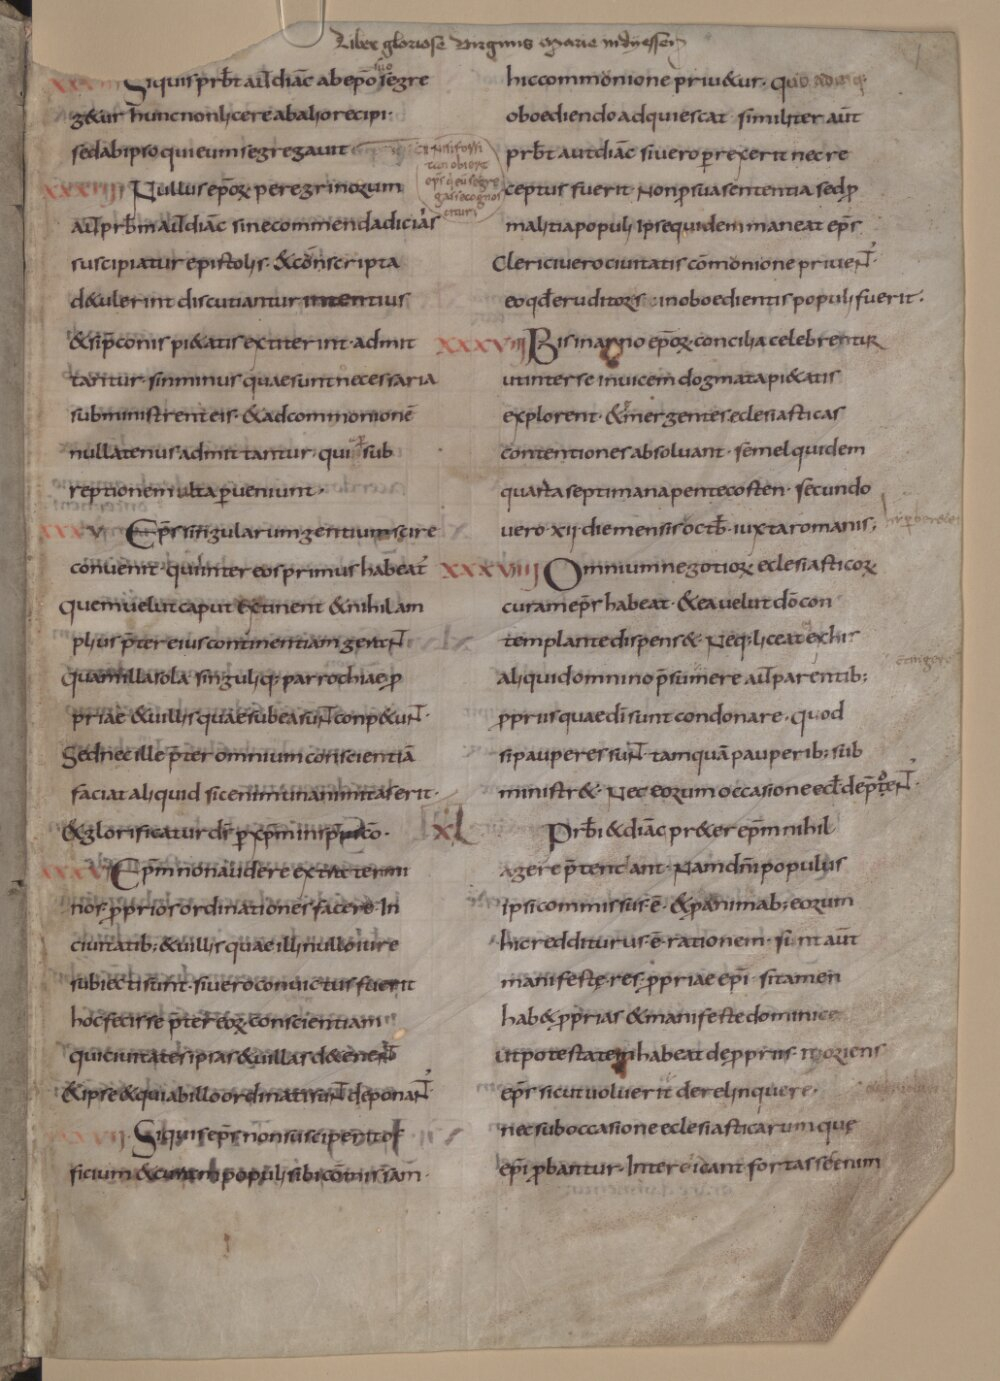 Liber gloriose Virginis Marie in dyessen
XXXIII Siquis prb̄t aut diāc ab epō suo segre
g&ur hunc non licere ab alio recipi·
sed ab ipso qui eum segregauit
cū nisi forsi
tan obierit
ep̄s q̇ eū segre
gasse cognos
citur;
XXXIIII Nullus epōꝝ peregrinorum
aut prb̄m aut diāc sine commendadiciis
suscipiatur epistolis· & cōnscripta
d&ulerint discutiantur intentius
& si p̄conis pi&atis extiterint· admit
tantur· sin minus quae sunt necessaria
subministrent eis· & ad commonionē
nullatenus admittantur· quia sub
reptionem multa ꝑueniunt·
XXXV Ep̄s singularum gentium scire
conuenit· qui inter eos primus habeat̄
quem uelut caput existiment & nihil am
plius p̄ter eius continentiam gerant
quam illa sola singuliq; parrochiae ꝓ
priae & uillis quae sub ea sunt conp&unt·
Sed nec ille p̄ter omnium conscientiā
faciat aliquid sic enim unanimitas erit·
& glorificatur dn̄s ꝑ xp̄m in sp̄u sc̄o·
XXXVI Ep̄m non audere extra termi
nos ꝓprios ordinationes facere· In
ciuitatib; & uillis quae illi nullo iure
subiecti sunt· si uero conuictus fuerit
hoc fecisse p̄ter eoꝝ conscientiam
qui ciuitates ipsas & uillas d&enent
& ipse & qui ab illo ordinati sunt deponant̄
XXXVII Siquis ep̄s non susciperit of
ficium & curam populi sibi cōmissam·
hic commonione priu&ur· quo adusq;
oboediendo adquiescat· similiter aūt
prb̄t aut diāc si uero ꝑrexerit nec re
ceptus fuerit· Non ꝓ sua sententia sed ꝓ
malitia populi· ipse quidem maneat ep̄s
Clerici uero ciuitatis cōmonione priuent̄·
eo qd̄ eruditores inoboedientis populi fuerit·
XXXVIII Bis in anno epōꝝ concilia celebrentur
ut inter se inuicem dogmata pi&atis
explorent· & emergentes eclesiasticas
contentiones absoluant· semel quidem
quarta septimana pentecosten· secundo
uero· xij die mensis octb̄· iuxta romanis;
XXXVIIII Omnium negotioꝝ eclesiasticoꝝ
curam ep̄s habeat· & ea uelut dō con
templante dispens&· Neq; liceat ex his
aliquid omnino p̄sumere aut parentib;
ꝓpriis quae dī sunt condonare· quod
si pauperes sunt tamquā pauperib; sub
ministr&· Nec eorum occasione ecl̄ dep̄tent̄·
XL Prb̄i & diāc pr&er ep̄m nihil
agere p̄tentant· Nam dn̄i populus
ipsi commissus ē· & ꝓ animab; eorum
hic redditurus ē rationem· sunt aūt
manifestę res ꝓpriae ep̄i· si tamen
hab& ꝓprias & manifeste dominice
ut potestatem habeat de ꝓpriis· moriens
ep̄s sicut uoluerit derelinquere·
nec sub occasione eclesiasticarum que
ep̄i ꝓbantur· Intercidant fortassetnim